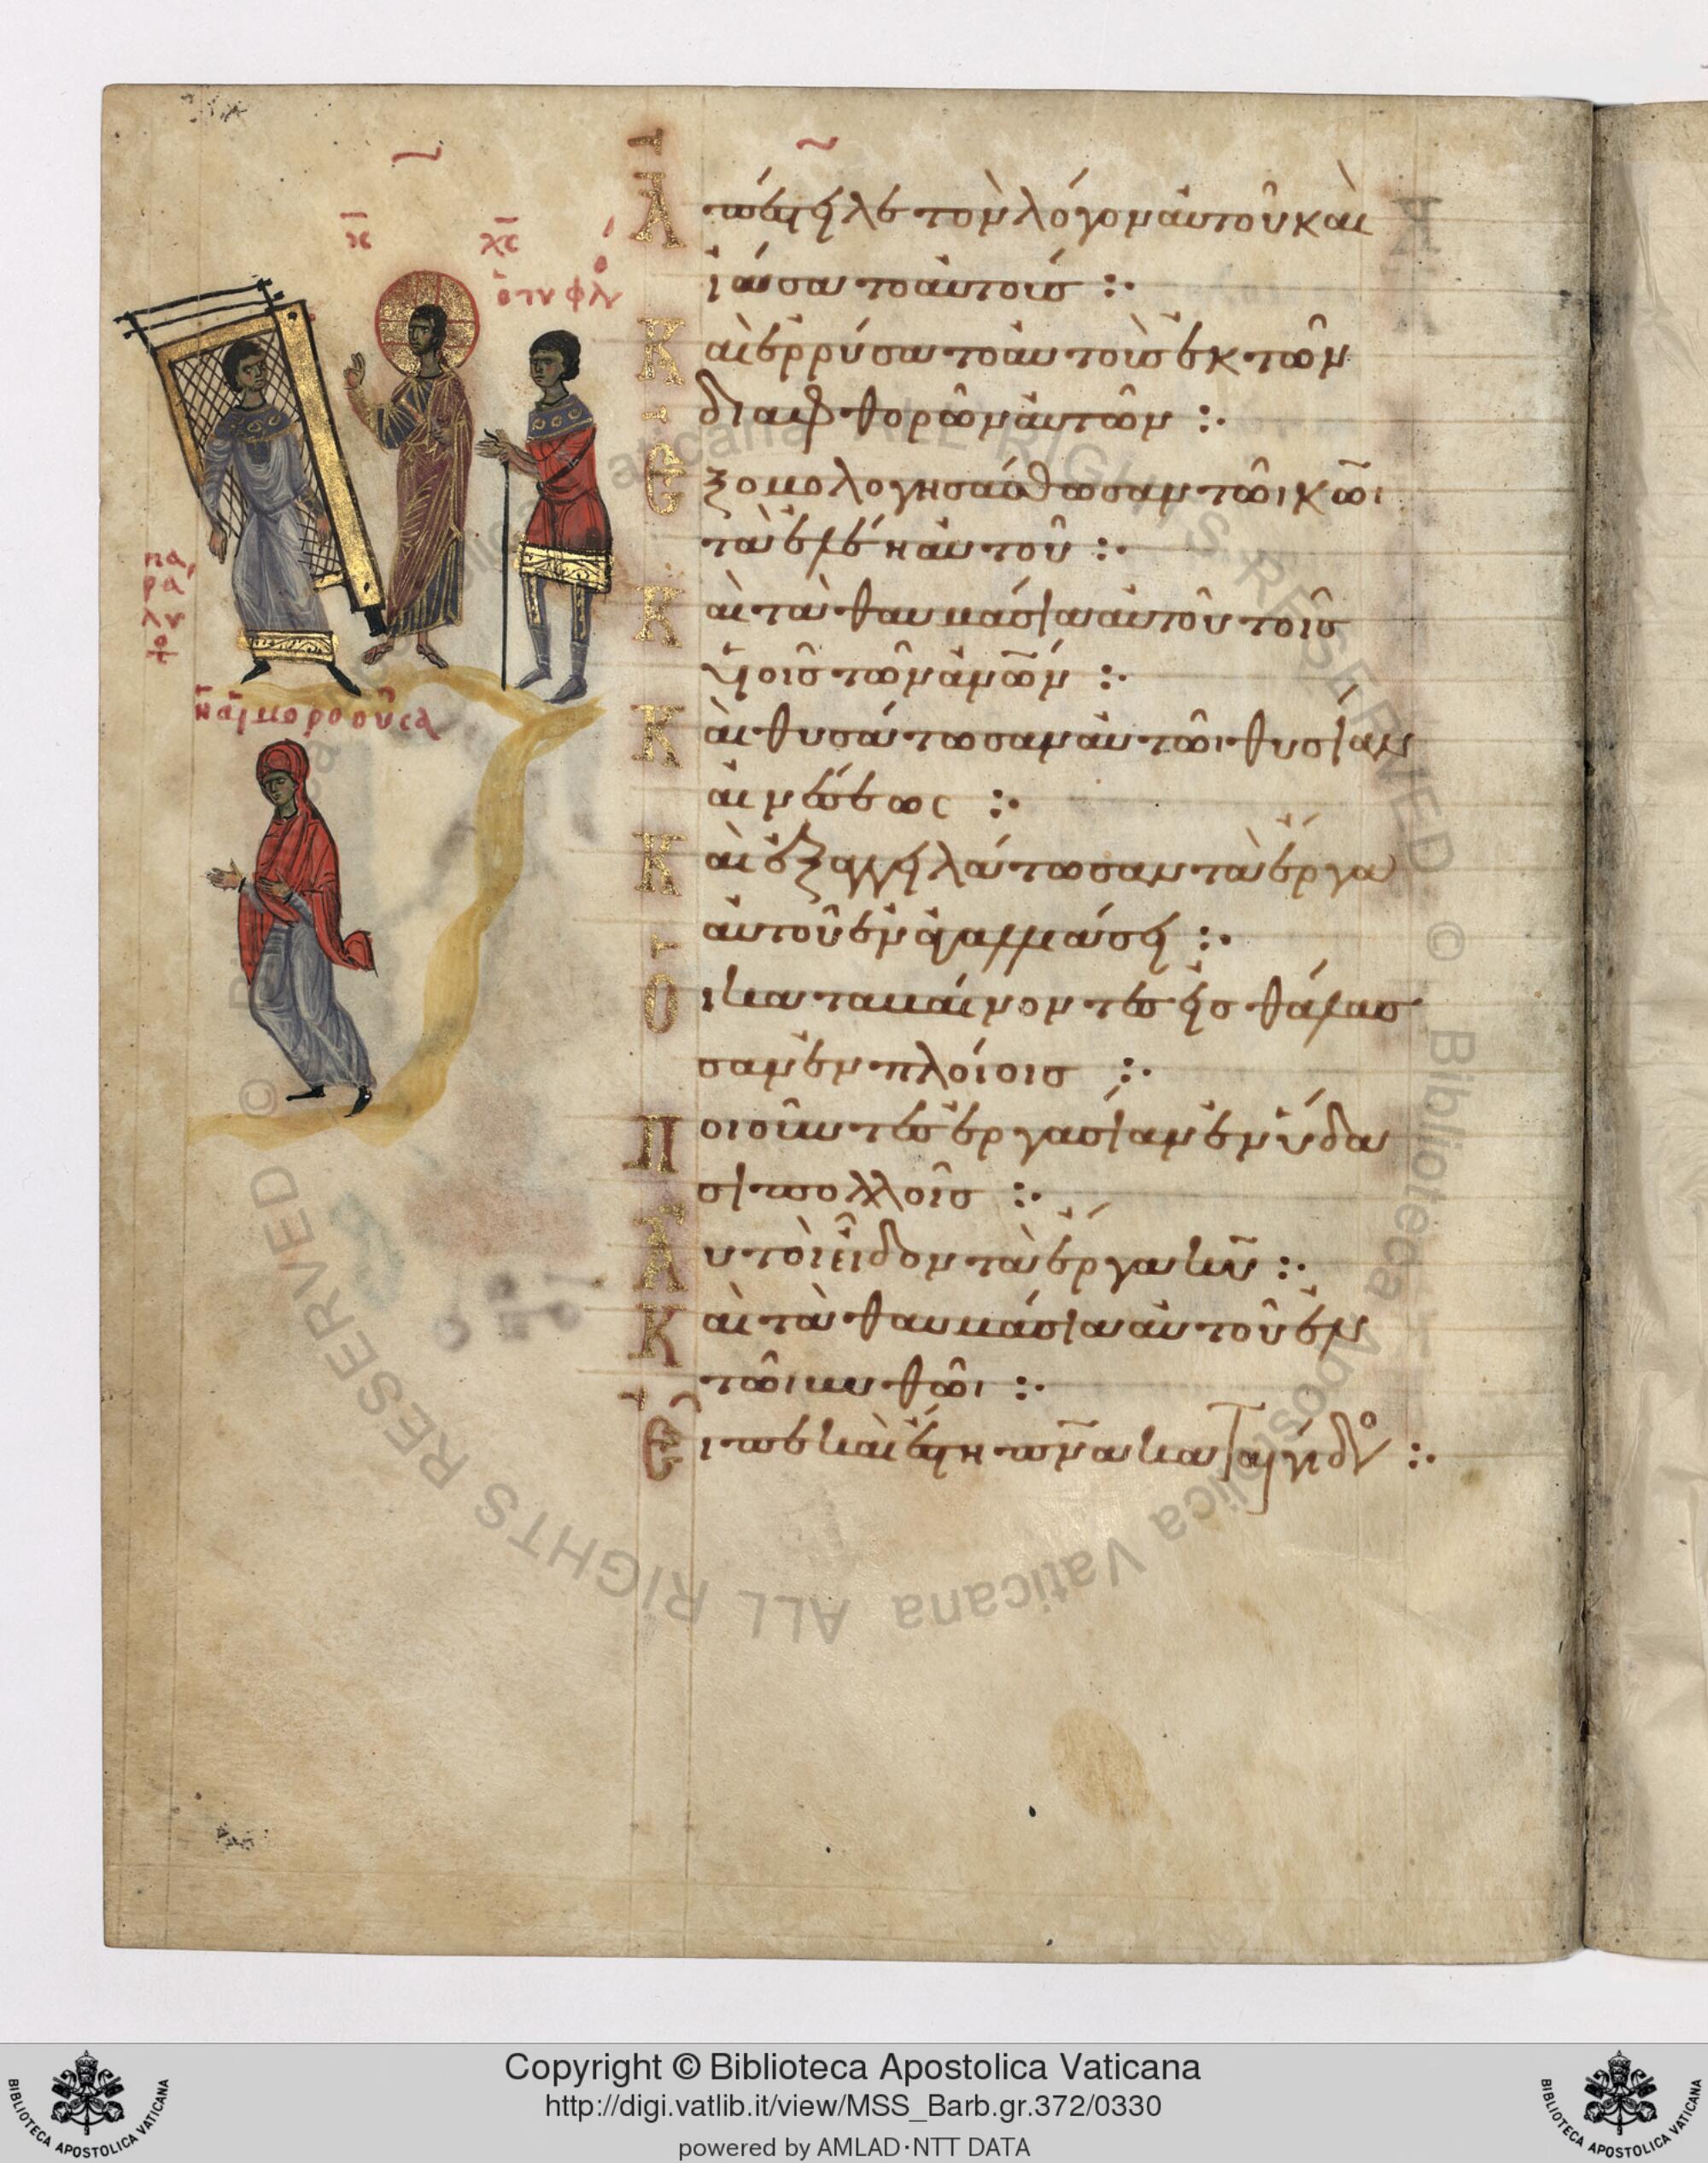 ι̅ς̅ χ̅ς̅
ὁ τυφλο
πα
ρα
λυ
ἡ αἱμοροοῦσα
Ἀπέστειλε τὸν λόγον αὐτοῦ καὶ
ἰάσατο αὐτούς :·
Καὶ ἐρρύσατο αὐτοὺς ἐκ τῶν
διαφθορῶν αὐτῶν :·
Ἐξομολογησάσθωσαν τῶι κ̅ω̅ι
τὰ ἐλέη αὐτοῦ :·
Καὶ τὰ θαυμάσια αὐτοῦ τοῖς
υἱοῖς τῶν α̅ν̅ω̅ν :·
Καὶ θυσάτωσαν αὐτῶι θυσίαν
αἰνέσεως :·
Καὶ ἐξαγγειλάτωσαν τὰ ἔργα
αὐτοῦ ἐν ἀγαλλιάσει :·
Οἱ καταβαίνοντες εἰς θάλασ
σαν ἐν πλοίοις :·
Ποιοῦντες ἐργασίαν ἐν ὕδα
σι πολλοῖς :·
Αὐτοὶ εἶδον τὰ ἔργα κ̅υ̅ :·
Καὶ τὰ θαυμάσια αὐτοῦ ἐν
τῶι βυθῶι :·
Εἶπε καὶ ἔστη π̅ν̅α καταιγίδο :·
© Biblioteca Apostolica Vaticana ALL RIGHTS RESERVED © Biblioteca Apostolica Vaticana ALL RIGHTS RESERVED
BIBLIOTECA APOSTOLICA VATICANA
Copyright © Biblioteca Apostolica Vaticana
http://digi.vatlib.it/view/MSS_Barb.gr.372/0330
powered by AMLAD·NTT DATA
BIBLIOTECA APOSTOLICA VATICANA